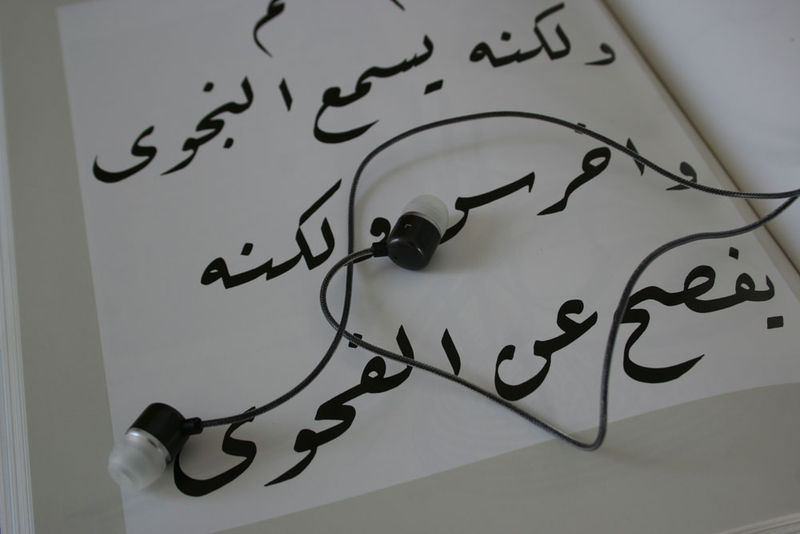 ولكنه يسمع النجوى
واخرس ولكنه
يفصح عن الفحوى